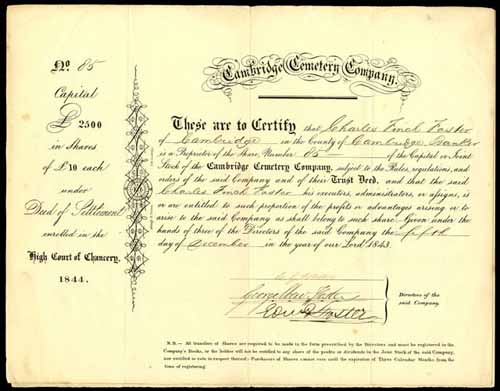 No 85
Capital
£ 2500
in Shares
of £ 10 each
under
Deed of Settlement
enrolled in the
High Court of Chancery,
1844.
Cambridge Cemetery Company.
These are to Certify that Charles Finch Foster
of Cambridge in the County of Cambridge Banker
is a Proprietor of the Share, Number 85 of the Capital or Joint
Stock of the Cambridge Cemetery Company, subject to the Rules, regulations, and
orders of the said Company and of their Trust Deed, and that the said
Charles Finch Foster his executors, administrators, or assigns, is
or are entitled to such proportion of the profits or advantages arising or to
arise to the said Company as shall belong to such share. Given under the
hands of three of the Directors of the said Company the fifth
day of December in the year of our Lord 1843.
George Foster
Foster
Directors of the
said Company.
N.B.— All transfers of Shares are required to be made in the form prescribed by the Directors and must be registered in the
Company's Books, or the holder will not be entitled to any share of the profits or dividends in the Joint Stock of the said Company,
nor entitled to vote in respect thereof; Purchasers of Shares cannot vote until the expiration of Three Calendar Months from the
time of registering.